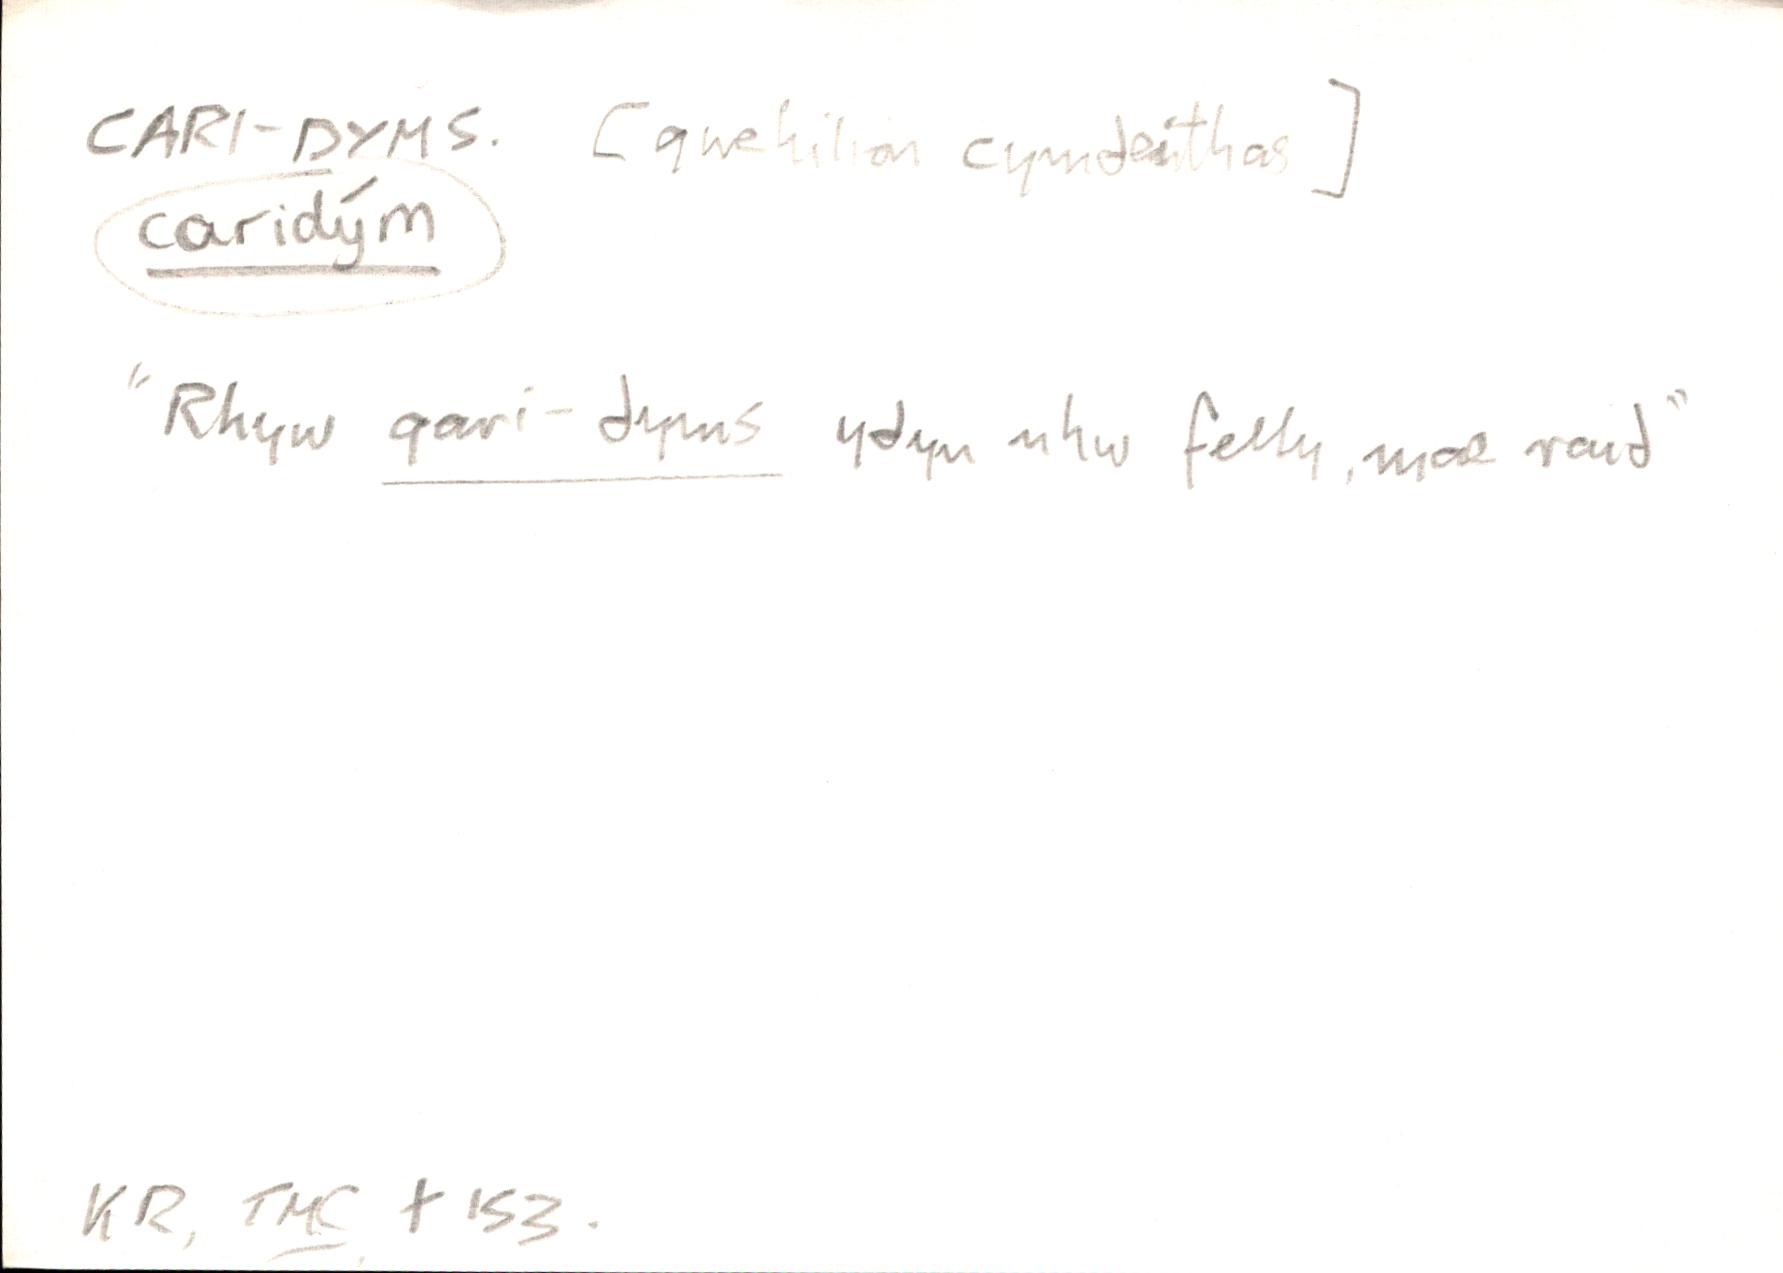 CARI-DYMS. [gwehilion cymdeithas]
caridým
"Rhyw gari-dyms ydyn nhw felly, mae raid"
KR, TMC, t 153.